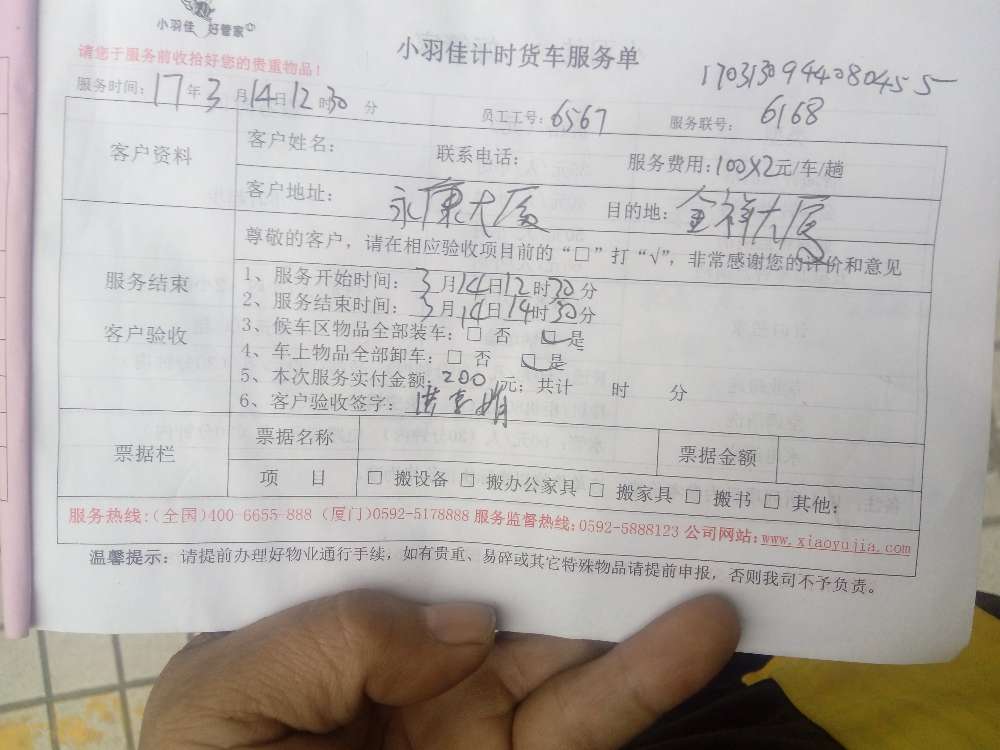 小羽佳 好管家
小羽佳计时货车服务单
请您于服务前收拾好您的贵重物品！
1703130944080455
服务时间：17年3月14日12时30分
员工工号：6567
服务联号：6168
客户资料
客户姓名： 联系电话： 服务费用：100X2元/车/趟
客户地址：永康大厦 目的地：金祥大厦
服务结束
客户验收
尊敬的客户，请在相应验收项目前的“□”打“√”，非常感谢您的评价和意见
1、服务开始时间：3月14日12时30分
2、服务结束时间：3月14日14时30分
3、候车区物品全部装车：□ 否 □ 是
4、车上物品全部卸车：□ 否 □ 是
5、本次服务实付金额：200元；共计 时 分
6、客户验收签字：
票据栏
票据名称 票据金额
项 目 □ 搬设备 □ 搬办公家具 □ 搬家具 □ 搬书 □ 其他：
服务热线：（全国）400-6655-888（厦门）0592-5178888 服务监督热线：0592-5888123 公司网站：www.xiaoyujia.com
温馨提示：请提前办理好物业通行手续，如有贵重、易碎或其它特殊物品请提前申报，否则我司不予负责。